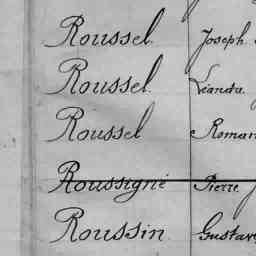 Roussel. Joseph
Roussel. Léandre
Roussel Roman
Roussigné Pierre
Roussin. Gustave